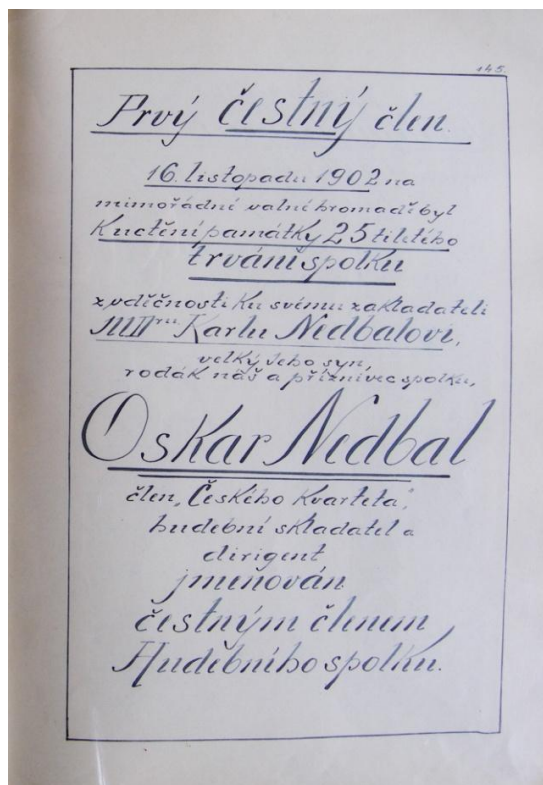 145.
Prvý čestný člen.
16. listopadu 1902 na
mimořádní valní hromadě byl
Kuctění památky 25 tiletého
trvání spolku
z vděčnosti ku svému zakladateli
JUDru Karlu Nedbalovi,
velký jeho syn,
rodák náš a příznivec spolku,
Oskar Nedbal
člen „Českého kvarteta",
hudební skladatel a
dirigent
jmeňován
čestným členem
Hudebního spolku.